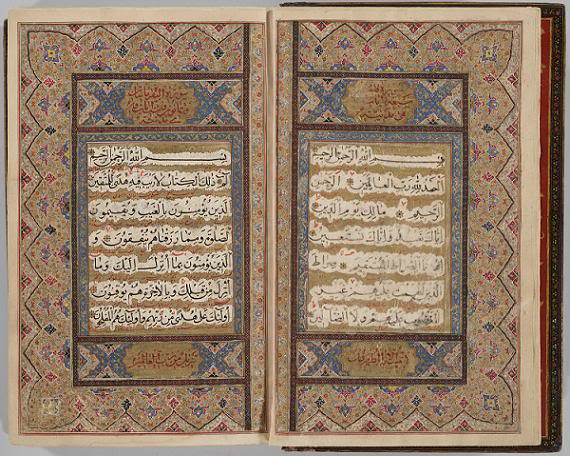 بسم الله الرحمن الرحيم
الحمد لله رب العالمين الرحمن
الرحيم مالك يوم الدين
إياك نعبد وإياك نستعين
اهدنا الصراط المستقيم صراط
الذين أنعمت عليهم غير
المغضوب عليهم ولا الضالين
بسم الله الرحمن الرحيم
الم ذلك الكتاب لا ريب فيه هدى للمتقين
الذين يؤمنون بالغيب ويقيمون
الصلوة ومما رزقناهم ينفقون و
الذين يؤمنون بما أنزل إليك وما
أنزل من قبلك وبالآخرة هم يوقنون
أولئك على هدى من ربهم وأولئك هم المفلحون